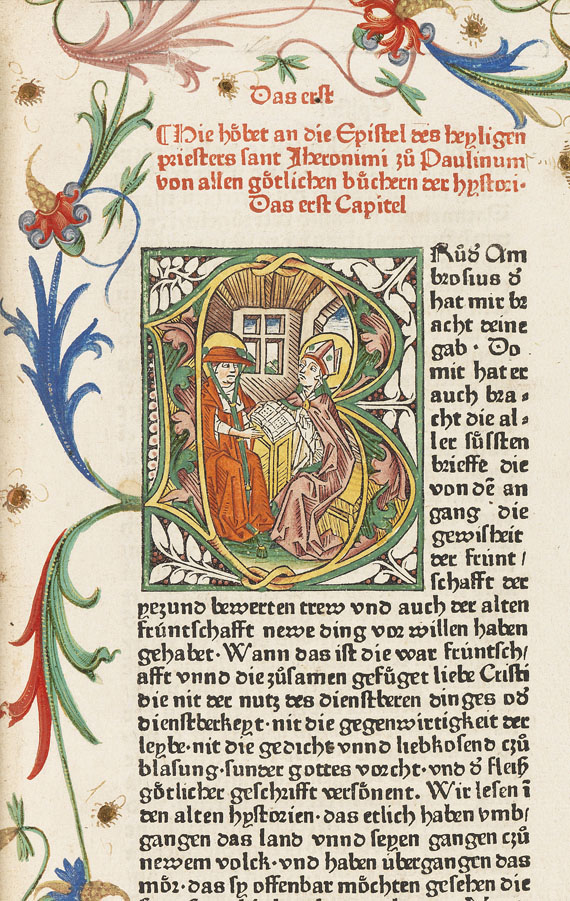 Das erst
Hie hoͤbet an die Epistel des heyligen
priesters sant Jheronimi zuͦ Paulinum
von allen goͤtlichen buͤchern der hystori·
Das erst Capitel
Ruͦd Am
brosius d
hat mir br
acht deine
gab · Do
mit hat er
auch bra⸗
cht die al⸗
ler suͤssten
brieffe die
von dē an
gang die
gewisheit
der frunt /
schafft der
yezund bewerten trew vnd auch der alten
fruntschafft newe ding vor willen haben
gehabet· Wann das ist die war fruntsch/
afft vnnd die zuͦsamen gefuͤget liebe Cristi
die nit der nutz des dienstberen dinges od
dienstberkeyt·nit die gegenwirtigkeit der
leybe·nit die gedicht vnnd liebkosend czuͦ
blasung·sunder gottes vorcht·vnd d fleiß
goͤtlicher geschrifft versoͤnent. Wir lesen ī
den alten hystorien·das etlich haben vmb/
gangen das land vnnd seyen gangen czuͦ
newem volck·vnd haben uͤbergangen das
moͤr·das sy offenbar moͤchten gesehen die